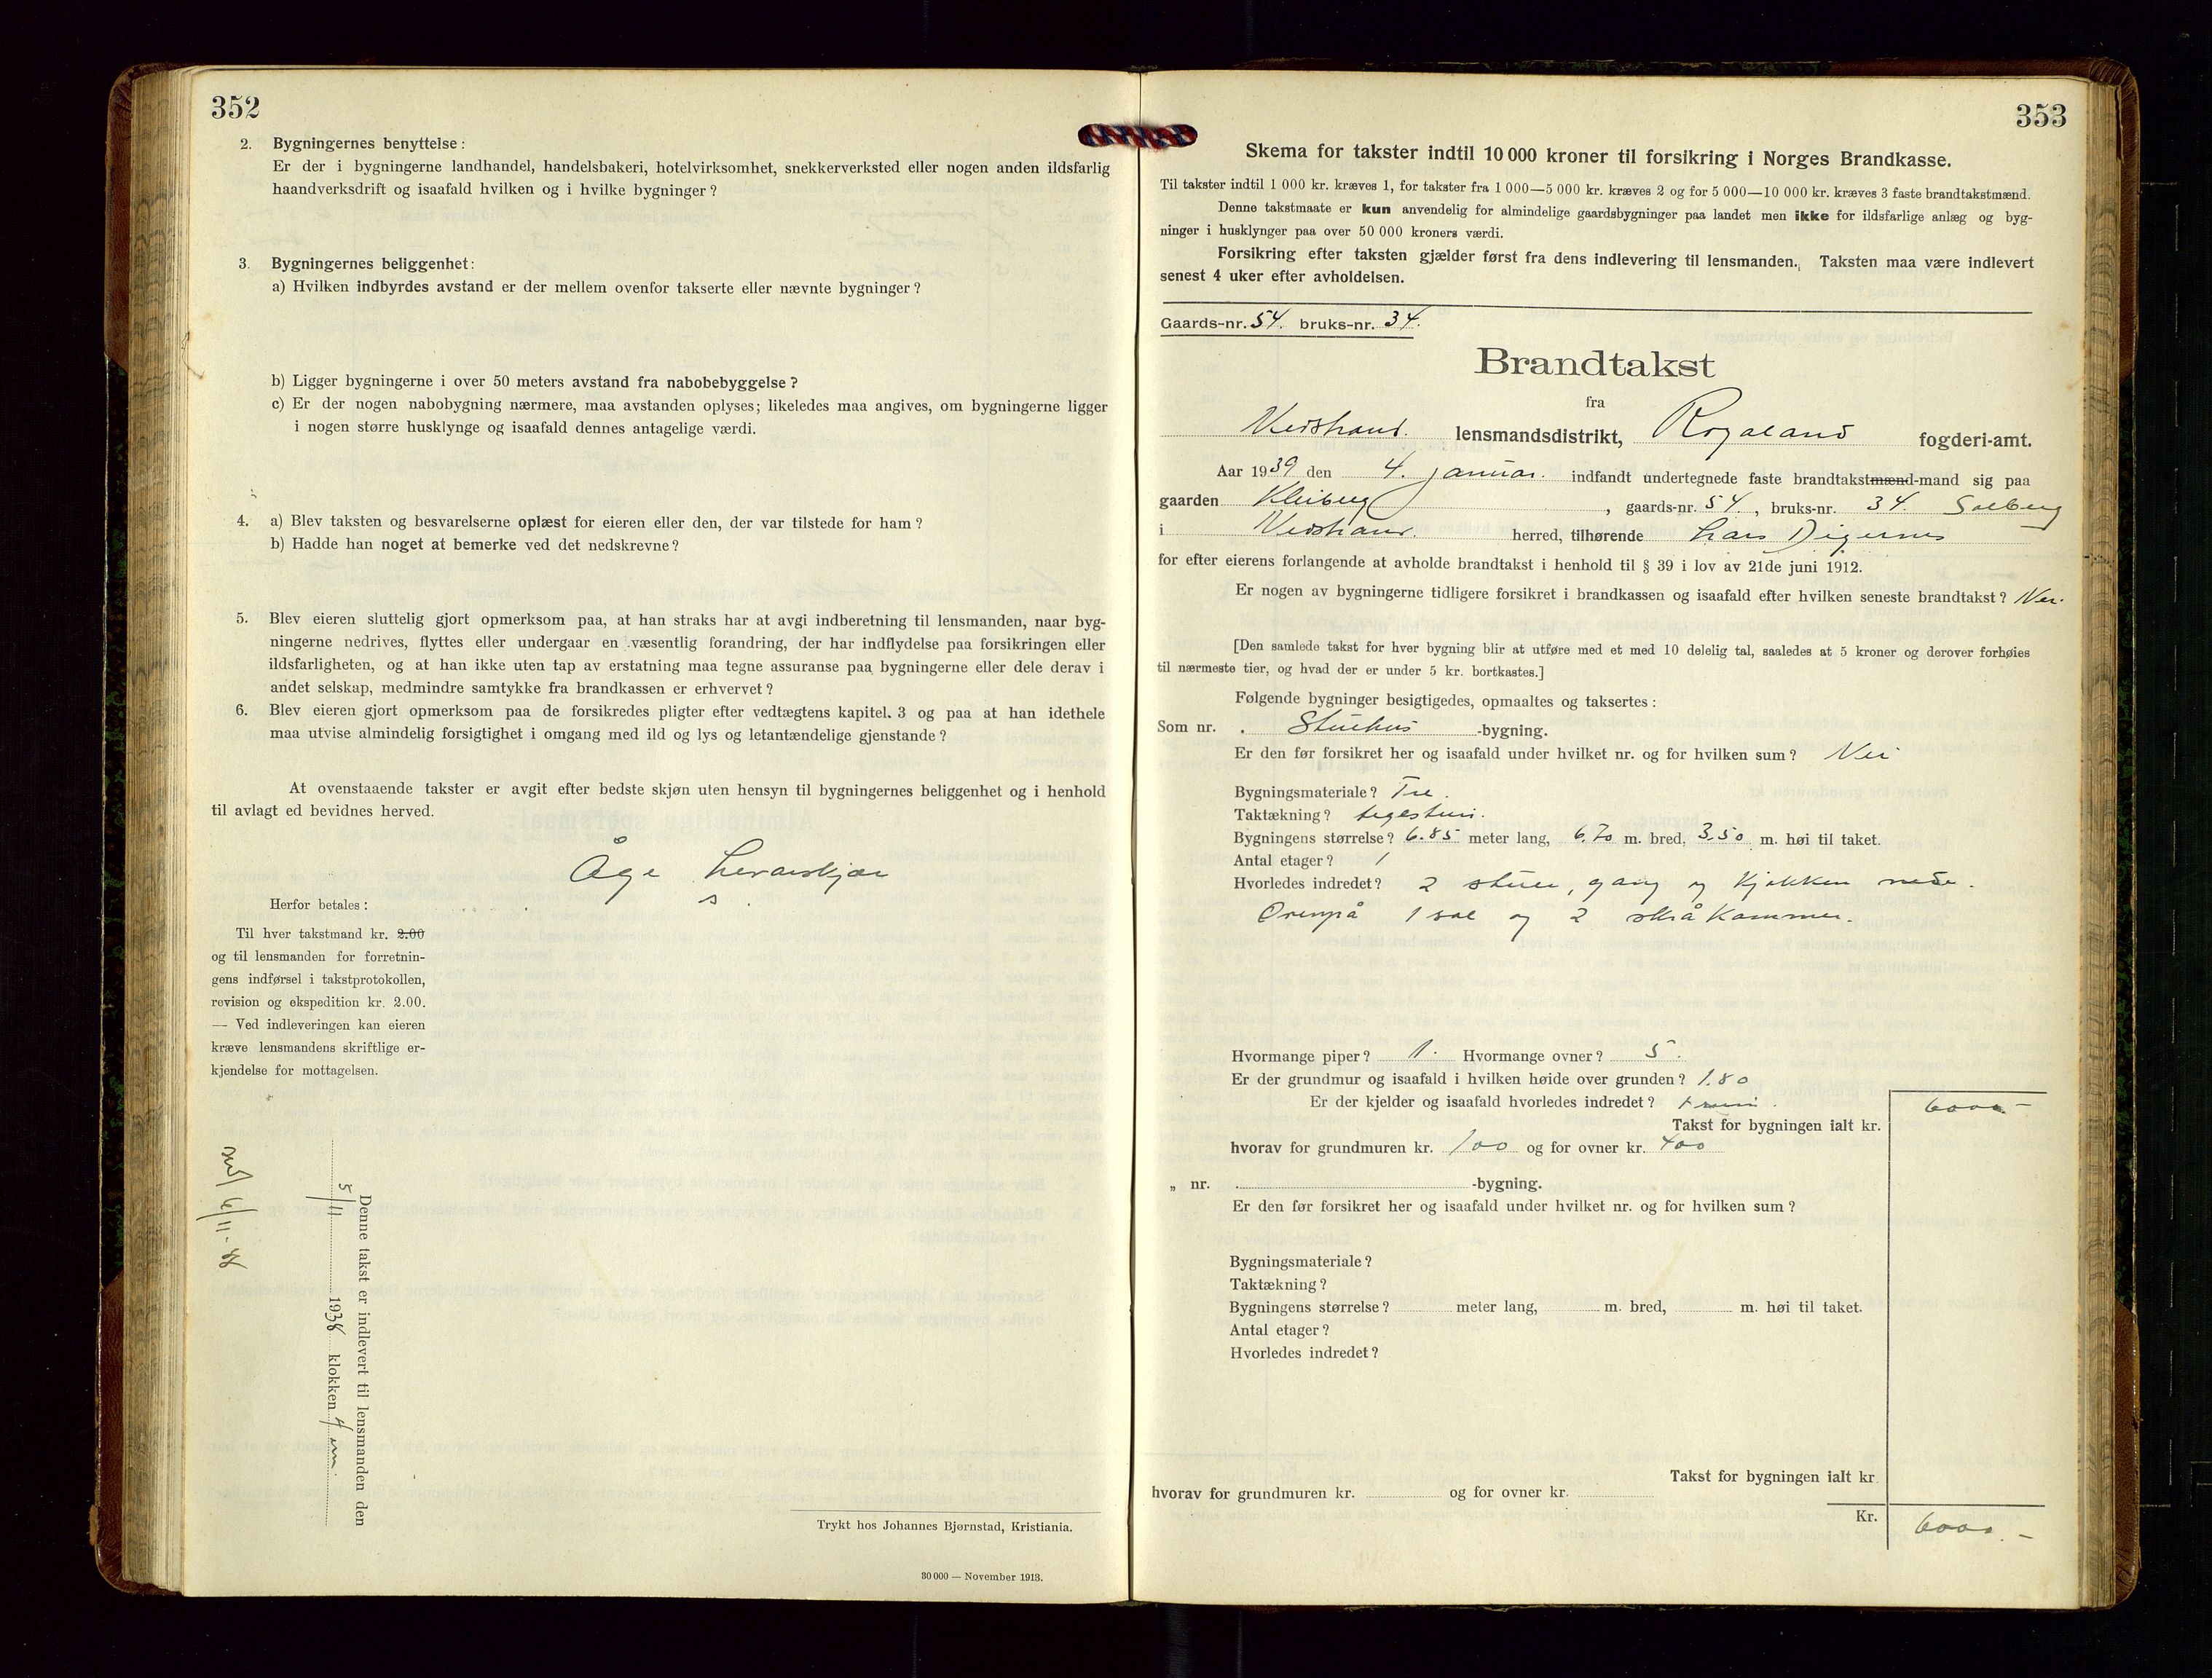 352
2. Bygningernes benyttelse:
Er der i bygningerne landhandel, handelsbakeri, hotelvirksomhet, snekkerverksted eller nogen anden ildsfarlig
haandverksdrift og isaafald hvilken og i hvilke bygninger?
3. Bygningernes beliggenhet:
a) Hvilken indbyrdes avstand er der mellem ovenfor takserte eller nævnte bygninger?
b) Ligger bygningerne i over 50 meters avstand fra nabobebyggelse?
c) Er der nogen nabobygning nærmere, maa avstanden oplyses; likeledes maa angives, om bygningerne ligger
i nogen større husklynge og isaafald dennes antagelige værdi.
4. a) Blev taksten og besvarelserne oplæst for eieren eller den, der var tilstede for ham?
b) Hadde han noget at bemerke ved det nedskrevne?
5. Blev eieren sluttelig gjort opmerksom paa, at han straks har at avgi indberetning til lensmanden, naar byg-
ningerne nedrives, flyttes eller undergaar en væsentlig forandring, der har indflydelse paa forsikringen eller
ildsfarligheten, og at han ikke uten tap av erstatning maa tegne assuranse paa bygningerne eller dele derav i
andet selskap, medmindre samtykke fra brandkassen er erhvervet?
6. Blev eieren gjort opmerksom paa de forsikredes pligter efter vedtægtens kapitel. 3 og paa at han idethele
maa utvise almindelig forsigtighet i omgang med ild og lys og letantændelige gjenstande?
At ovenstaaende takster er avgit efter bedste skjøn uten hensyn til bygningernes beliggenhet og i henhold
til avlagt ed bevidnes herved.
Åge
Herfor betales:
Til hver takstmand kr. 2.00
og til lensmanden for forretnin-
gens indførsel i takstprotokollen,
revision og ekspedition kr. 2.00.
— Ved indleveringen kan eieren
kræve lensmandens skriftlige er-
kjendelse for mottagelsen.
Denne takst er indlevert til lensmanden den
5/11 1938 klokken 4 em.
6/11-38
Trykt hos Johannes Bjørnstad, Kristiania.
30 000 — November 1913.
353
Skema for takster indtil 10 000 kroner til forsikring i Norges Brandkasse.
Til takster indtil 1 000 kr. kræves 1, for takster fra 1 000—5 000 kr. kræves 2 og for 5 000—10 000 kr. kræves 3 faste brandtakstmænd.
Denne takstmaate er kun anvendelig for almindelige gaardsbygninger paa landet men ikke for ildsfarlige anlæg og byg-
ninger i husklynger paa over 50 000 kroners værdi.
Forsikring efter taksten gjælder først fra dens indlevering til lensmanden. Taksten maa være indlevert
senest 4 uker efter avholdelsen.
Gaards-nr. 54. bruks-nr. 34.
Brandtakst
fra
Vedstrand. lensmandsdistrikt, Rogaland fogderi-amt.
Aar 1939 den 4. januar. indfandt undertegnede faste brandtakstmænd-mand sig paa
gaarden Kleiberg, gaards-nr. 54., bruks-nr. 34. Solberg
i Vedstrand. herred, tilhørende Lars Digernes
for efter eierens forlangende at avholde brandtakst i henhold til § 39 i lov av 21de juni 1912.
Er nogen av bygningerne tidligere forsikret i brandkassen og isaafald efter hvilken seneste brandtakst? Nei.
[Den samlede takst for hver bygning blir at utføre med et med 10 delelig tal, saaledes at 5 kroner og derover forhøies
til nærmeste tier, og hvad der er under 5 kr. bortkastes.]
Følgende bygninger besigtigedes, opmaaltes og taksertes:
Som nr. . Stuehus -bygning.
Er den før forsikret her og isaafald under hvilket nr. og for hvilken sum? Nei
Bygningsmateriale? Tre.
Taktækning? teglstein.
Bygningens størrelse? 6.85 meter lang, 6.70 m. bred, 3.50 m. høi til taket.
Antal etager? 1
Hvorledes indredet? 2 stuer, gang og kjøkken nede.
Ovenpå 1 sal og 2 skråkammer.
Hvormange piper? 1. Hvormange ovner? 5.
Er der grundmur og isaafald i hvilken høide over grunden? 1.80
Er der kjelder og isaafald hvorledes indredet?
Takst for bygningen ialt kr. 6000.-
hvorav for grundmuren kr. 100 og for ovner kr. 400
„ nr. -bygning.
Er den før forsikret her og isaafald under hvilket nr. og for hvilken sum?
Bygningsmateriale?
Taktækning?
Bygningens størrelse? meter lang, m. bred, m. høi til taket.
Antal etager?
Hvorledes indredet?
Takst for bygningen ialt kr.
hvorav for grundmuren kr. og for ovner kr.
Kr. 6000.-